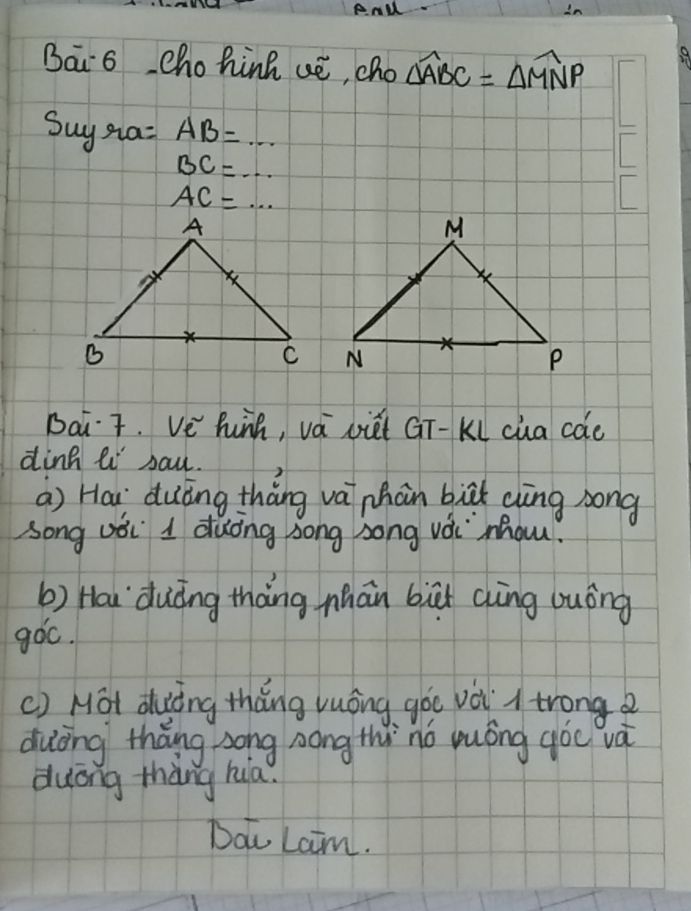 Bài 6 - Cho hình vẽ, cho ΔABC = ΔMNP
Suy ra: AB = ...
BC = ...
AC = ...
A
M
B
C
N
P
Bài 7. Vẽ hình, và viết GT - KL của các
định lí sau.
a) Hai đường thẳng và phân biệt cùng song
song với 1 đường song song với nhau.
b) Hai đường thẳng phân biệt cùng vuông
góc.
c) Một đường thẳng vuông góc với 1 trong 2
đường thẳng song song thì nó vuông góc và
đường thẳng kia.
Bài Làm.